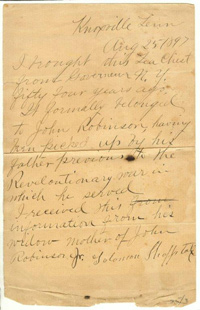 Knoxville Tenn
(Aug 25 1897
I brought this Tea Chest
from Governeur N.Y.
fifty four years ago.
It formally belonged
to John Robinson, having
been picked up by his
father previous to the
Revolutionary war in
which he served
I received this
information from his
widow mother of John
Robinson Jr. Solomon